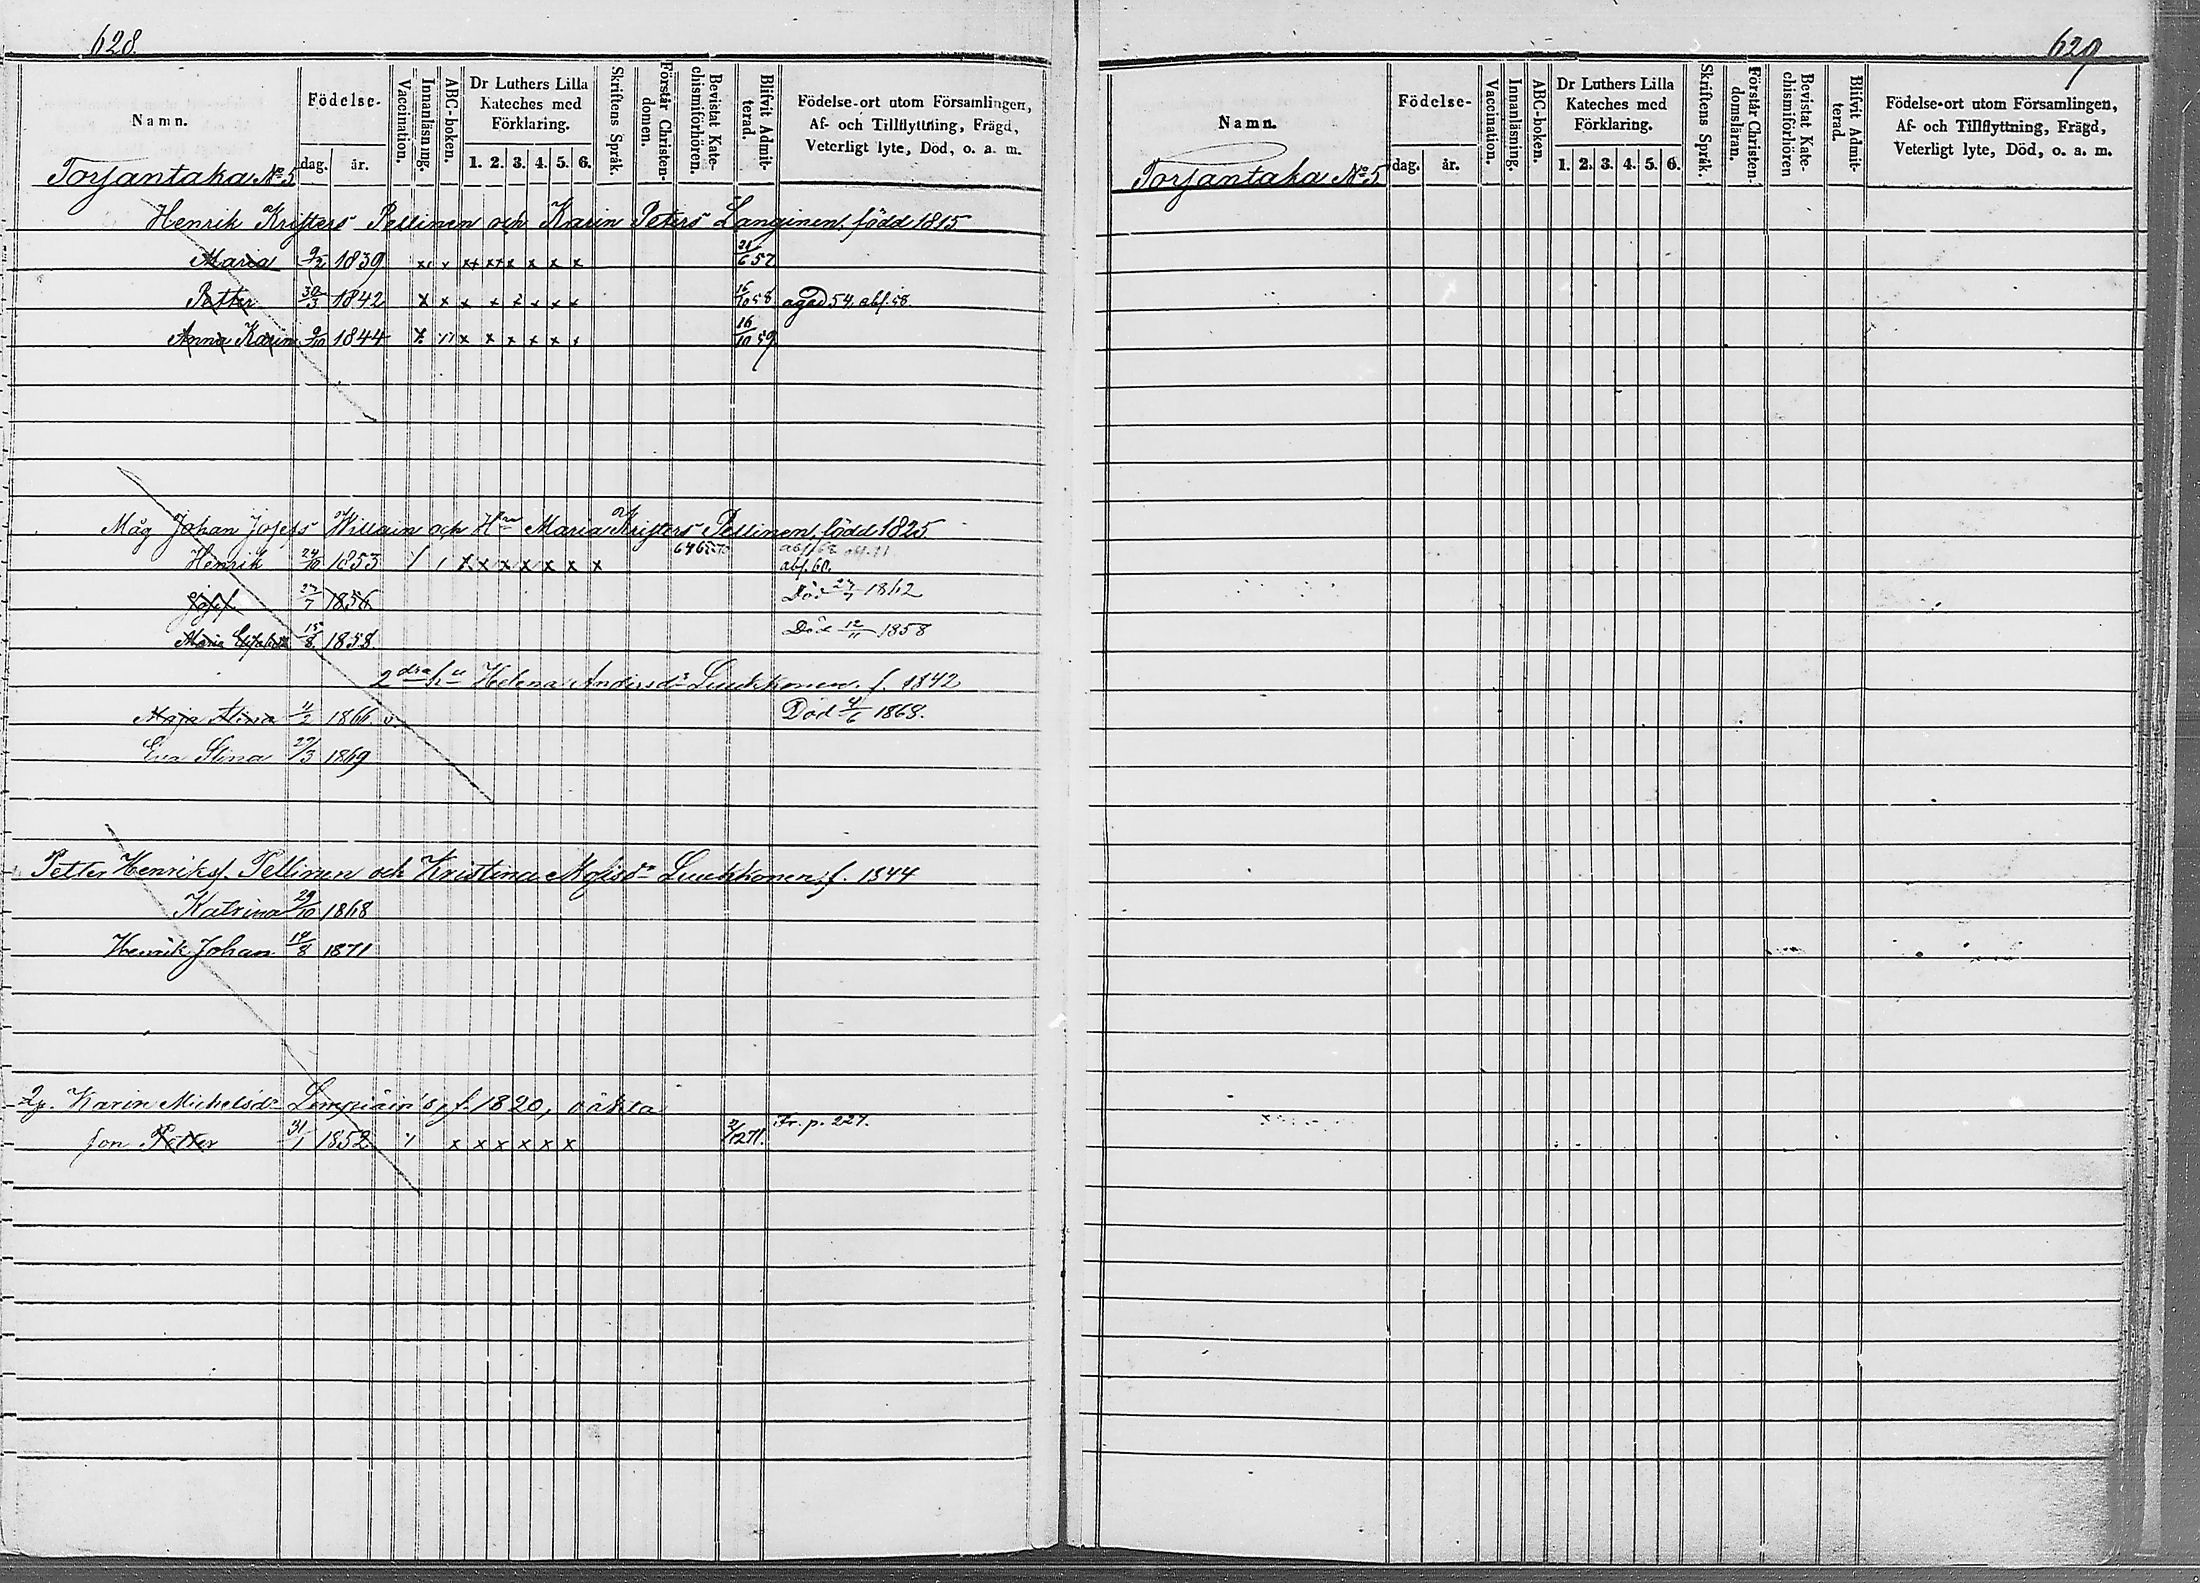 628.
Namn.
Födelse-
dag. år.
Vaccination.
Innanläsning.
ABC-boken.
Dr Luthers Lilla
Kateches med
Förklaring.
1. 2. 3. 4. 5. 6.
Skriftens Språk.
Förstår Christen-
domen.
Bevistat Kate-
chismiförhören.
Blifvit Admit-
terad.
Födelse-ort utom Församlingen,
Af- och Tillflyttning, Frägd,
Veterligt lyte, Död, o. a. m.
Torjantaka No 5
Henrik Kristers Pellinen och Karin Peters Langinen, född 1815
Maria 9/2 1839 x x x x x x x x 21/6 57
Petter 30/3 1842 x x x x x x x x 15/10 58 agad 54. abs. 58.
Anna Karin 9/10 1844 x x x x x x x 16/10 59
Måg Johan Josefs Willain och Hru Maria Kristers Pellinen, född 1825
Henrik 24/10 1853 x x x x x x x abs. 60.
Josef 27/7 1856 Död 27/7 1862
Maria Elisabeth 15/8 1858 Död 12/11 1858
2dra hu Helena Andersdr Luukkonen. f. 1842
Maja Stina 4/2 1866. v. Död 4/6 1868.
Eva Stina 29/3 1869
Petter Henriks. Pellinen och Kristina Mosisdr Luukkonen, f. 1844
Katrina 29/10 1868
Henrik Johan 14/8 1871
Karin Michelsdr f. 1820, oäkta
son Petter 31/1 1852 x x x x x x 2/12 71. Fr. p. 227.
629
Namn.
Födelse-
dag. år.
Vaccination.
Innanläsning.
ABC-boken.
Dr Luthers Lilla
Kateches med
Förklaring.
1. 2. 3. 4. 5. 6.
Skriftens Språk.
Förstår Christen-
domsläran.
Bevistat Kate-
chismiförhören
Blifvit Admit-
terad.
Födelse-ort utom Församlingen,
Af- och Tillflyttning, Frägd,
Veterligt lyte, Död, o. a. m.
Torjantaka No 5